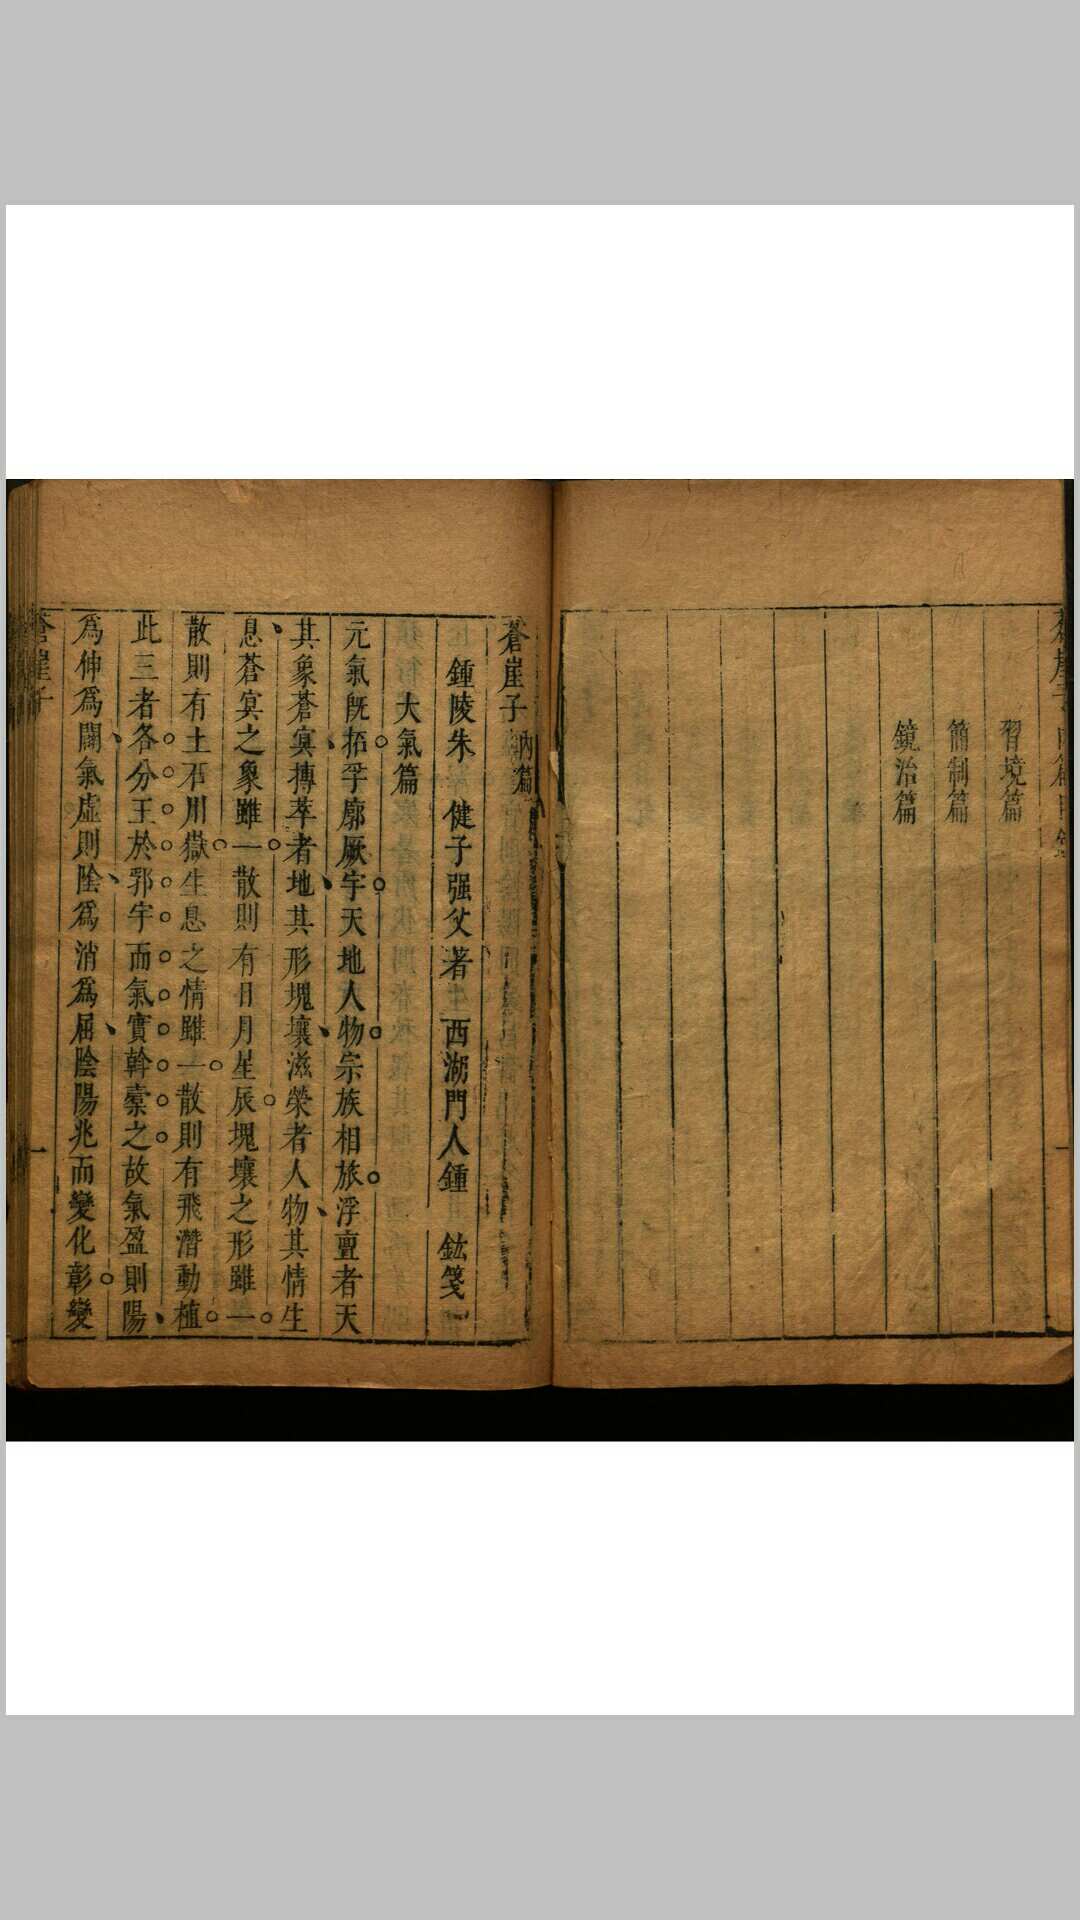 習境篇
簡制篇
鏡治篇
蒼崖子 內篇
鍾陵朱 健子强父著 西湖門人鍾 鈜箋
大氣篇
元氣旣拓孚廓厥宇天地人物宗族相旅浮亶者天
其象蒼寞摶萃者地其形塊壤滋榮者人物其情生
息蒼寞之象雖一散則有日月星辰塊壤之形雖一
散則有土石川嶽生息之情雖一散則有飛潛動植
此三者各分王於郛宇而氣實斡橐之故氣盈則陽
爲伸爲闢氣虛則陰爲消爲屈陰陽兆而變化彰變
蒼崖子
一